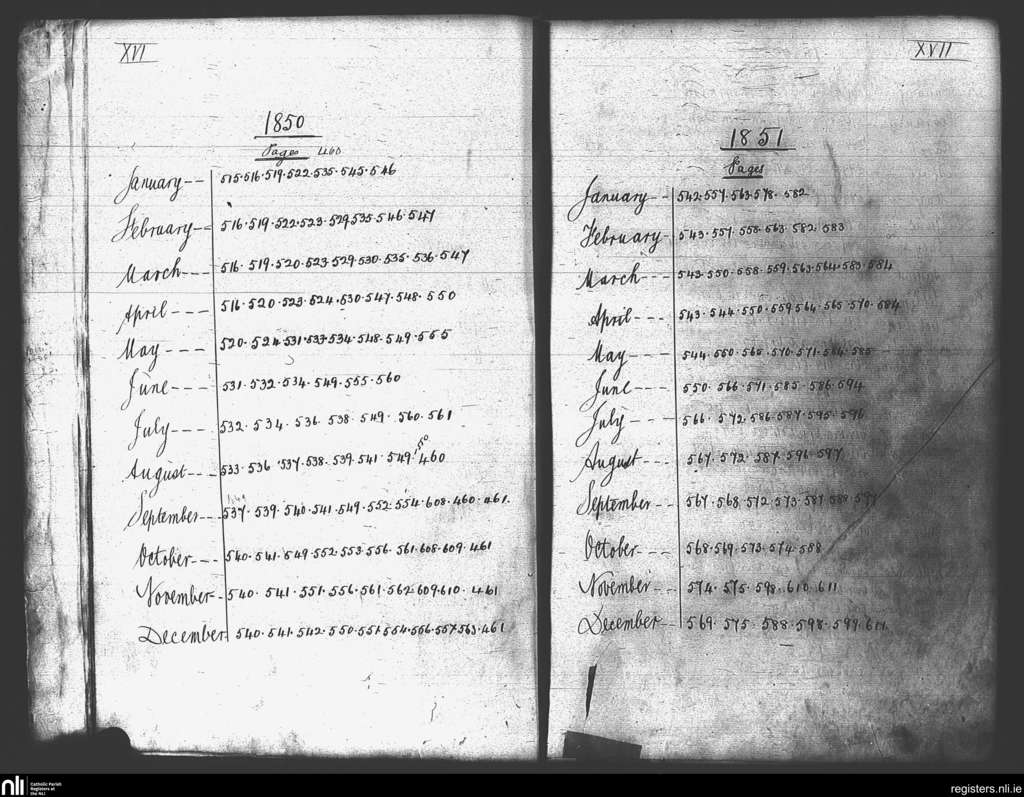 XVI
1850
Pages 460
January -- 515.516.519.522.535.545.546
February -- 516.519.522.523.529.535.546.547
March --- 516.519.520.523.529.530.535.536.547
April ---- 516.520.523.524.530.547.548.550
May ---- 520.524.531.533.534.548.549.555
June ---- 531.532.534.549.555.560
July ---- 532.534.536.538.549.560.561
August --- 533.536.537.538.539.541.549.550.460
September -- 537.539.540.541.549.552.554.608.460.461.
October --- 540.541.549.552.553.556.561.608.609.461
November - 540.541.551.556.561.562.609.610.461
December 540.541.542.550.551.554.556.557.563.461
XVII
1851
Pages
January -- 542.557.563.578.582
February - 543.557.558.563.582.583
March --- 543.550.558.559.563.564.583.584
April --- 543.544.550.559.564.565.570.584
May --- 544.550.565.570.571.584.585
June --- 550.566.571.585.586.594
July --- 566.572.586.587.595.596
August --- 567.572.587.596.597
September -- 567.568.572.573.587.588.597
October --- 568.569.573.574.588
November -- 574.575.598.610.611
December -- 569.575.588.598.599.611
nli Catholic Parish
Registers at
the NLI
registers.nli.ie